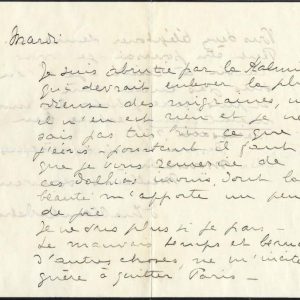 Mardi
Je suis abrutie par la Kalmine
qui devrait enlever la plus
odieuse des migraines, mais
il n'en est rien et je ne
sais pas très bien ce que
j'écris - pourtant il faut
que je vous remercie de
ces Dahlias dont la
beauté m'apporte un peu
de
Je ne sais plus si je pars -
Le mauvais temps et
d'autres choses, ne m'incitent
guère à quitter Paris -